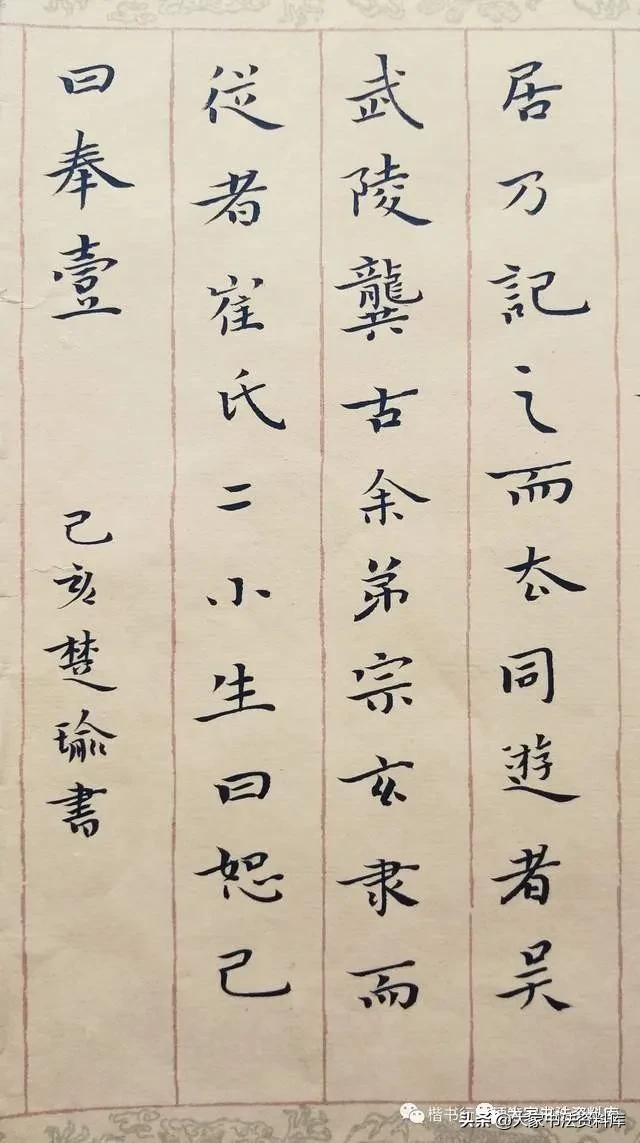 居乃記之而去同遊者吴
武陵龔古余弟宗玄隶而
従者崔氏二小生曰恕己
曰奉壹 己亥楚瑜書
头条@大家书法资料库